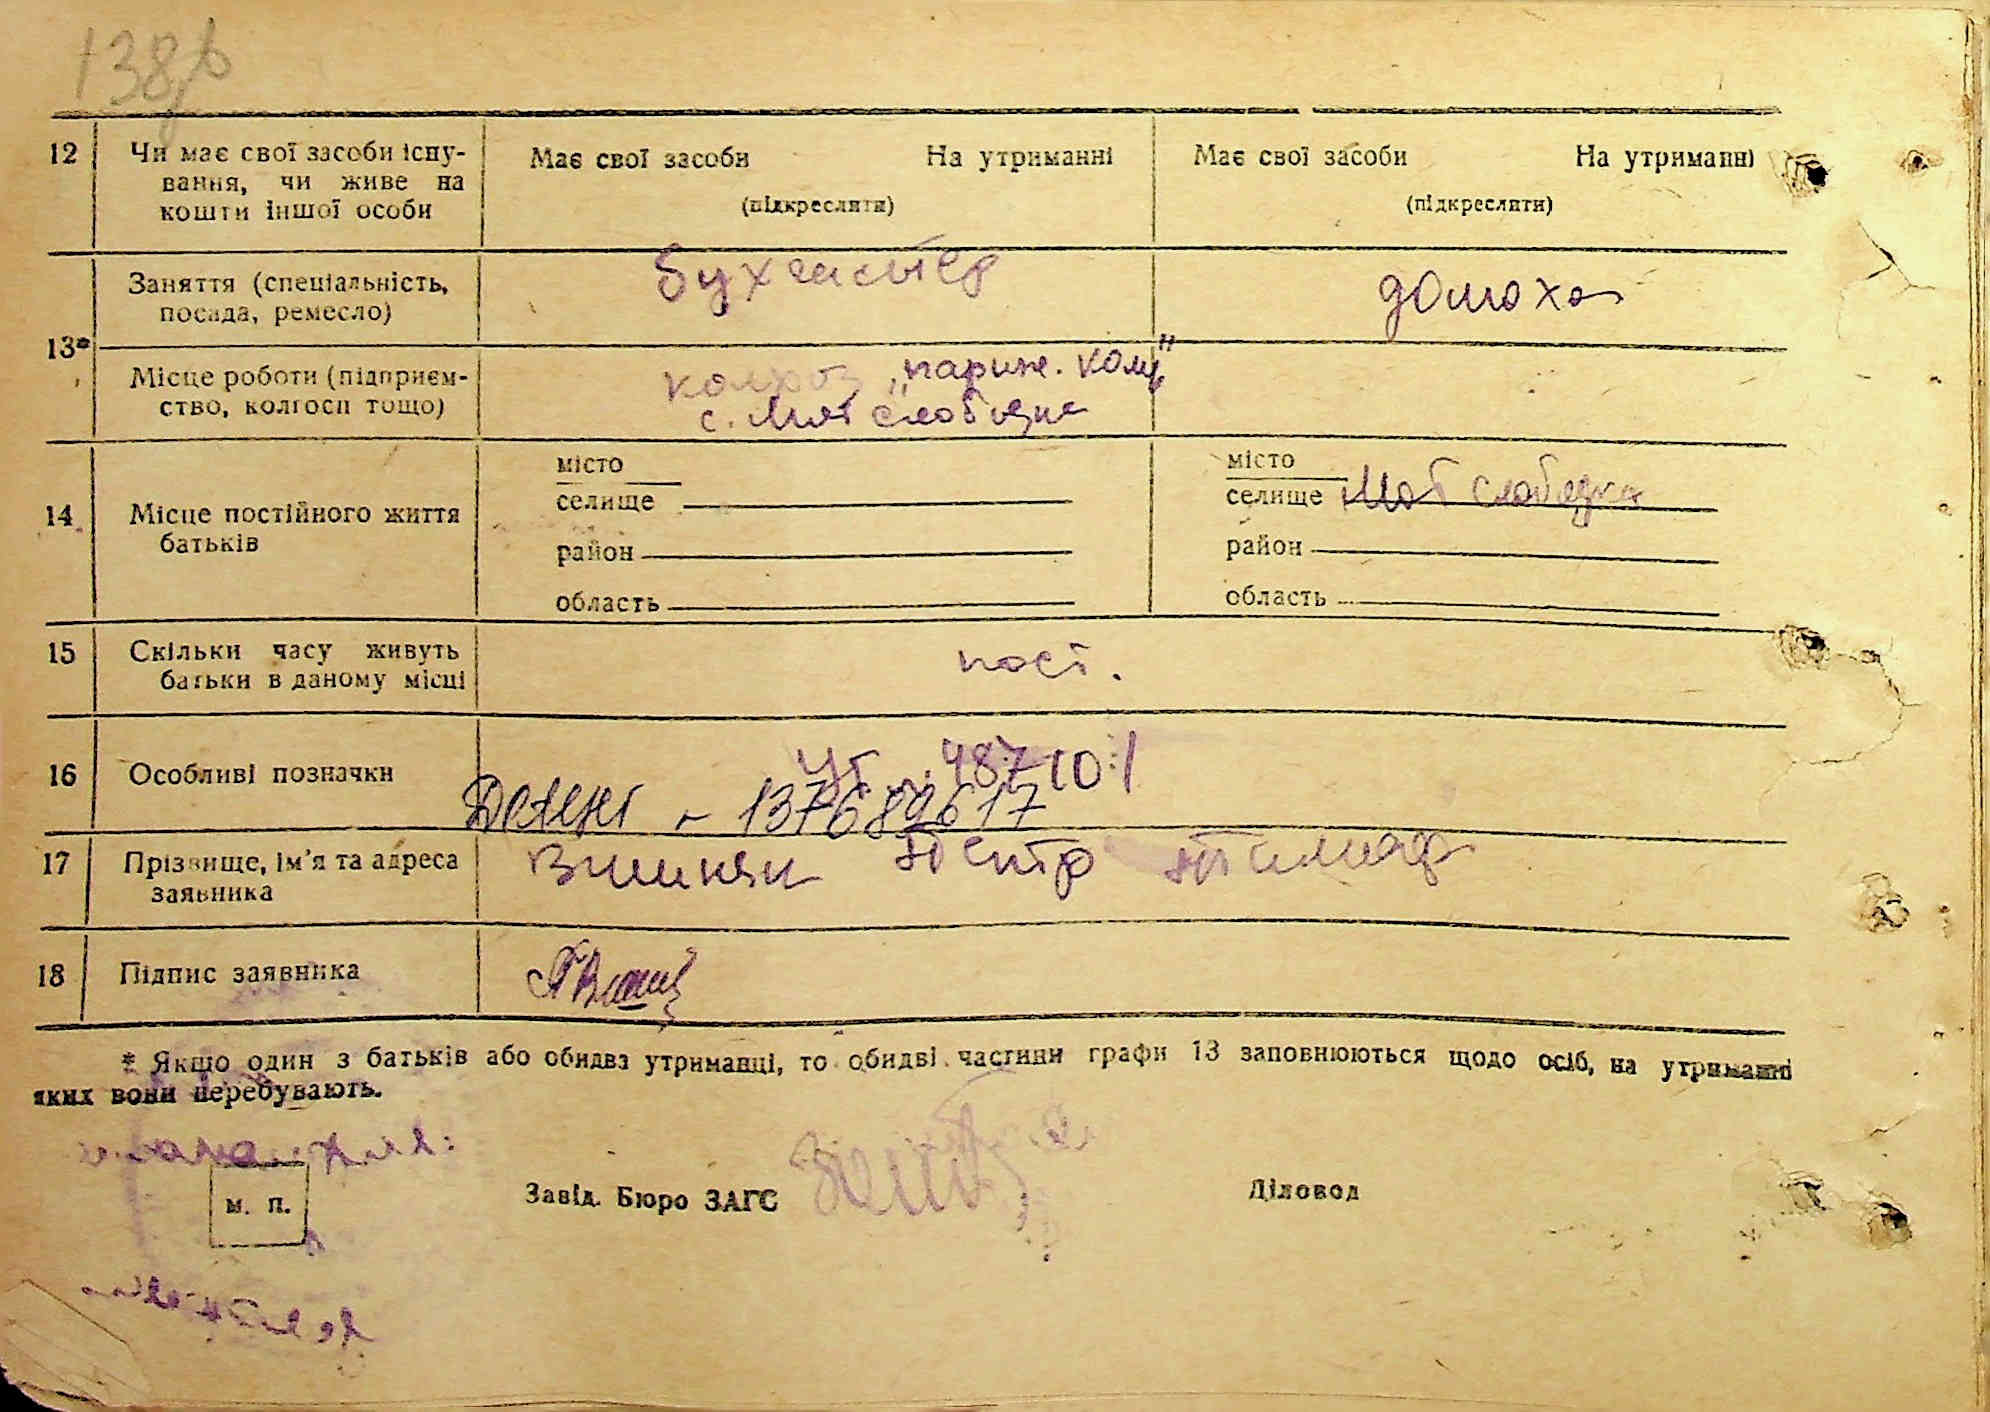 138
12 Чи має свої засоби існу-
вання, чи живе на
кошти іншої особи
Має свої засоби На утриманні
(підкреслити)
Має свої засоби На утриманні
(підкреслити)
13*
Заняття (спеціальність,
посада, ремесло)
бухгалтер
домохоз
Місце роботи (підприєм-
ство, колгосп тощо)
колгосп „париж. кому"
с. Мат слобидка
14 Місце постійного життя
батьків
місто
селище
район
область
місто
селище Мат слобидка
район
область
15 Скільки часу живуть
батьки в даному місці
пост.
16 Особливі позначки
487101
- 137689617
17 Прізвище, ім'я та адреса
заявника
Вишняк Петр
18 Підпис заявника
* Якщо один з батьків або обидва утриманці, то обидві частини графи 13 заповнюються щодо осіб, на утриманні
яких вони перебувають.
м. п.
Завід. Бюро ЗАГС
Діловод